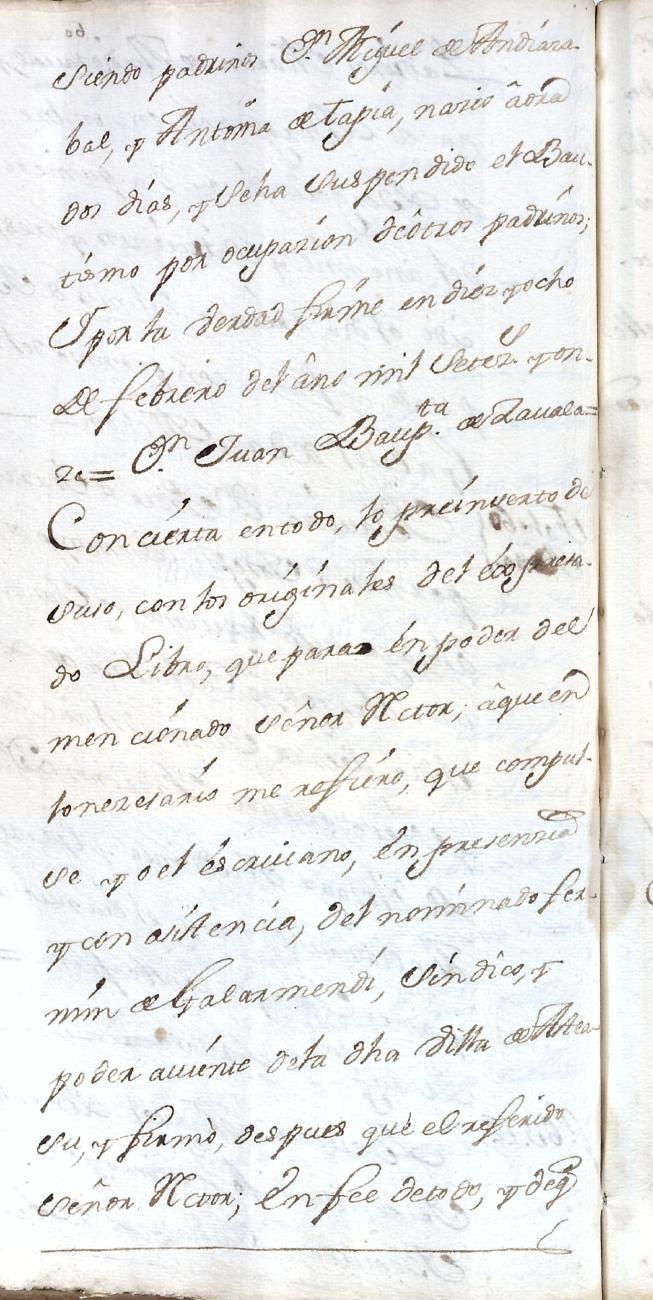 siendo padrinos Dn. Miguel de Andiara-
bal, y Antonia de Tapia, nacio âora
dos dias, y seha suspendido el Bau-
tismo por ocupacion deôtros padrinos;
Y por la verdad firme en diez y ocho
de febrero del âno mil setez.s y on-
ze= Dn. Juan Baup.ta de Zavala=
Concierta entodo, lo preinserto de
suso, con los originales del éxpresa-
do Libro, que para en poder del
mencionado señor Rector; âquien
lonecesario me refiero, que compul-
se yo el éscrivano, én presencia
y con asistencia, del nominado fer-
min de Galarmendi, sindico, y
poder aviente dela dha villa de Atea-
su, y firmò, despues què el referido
señor Rector; én fee detodo, y deq